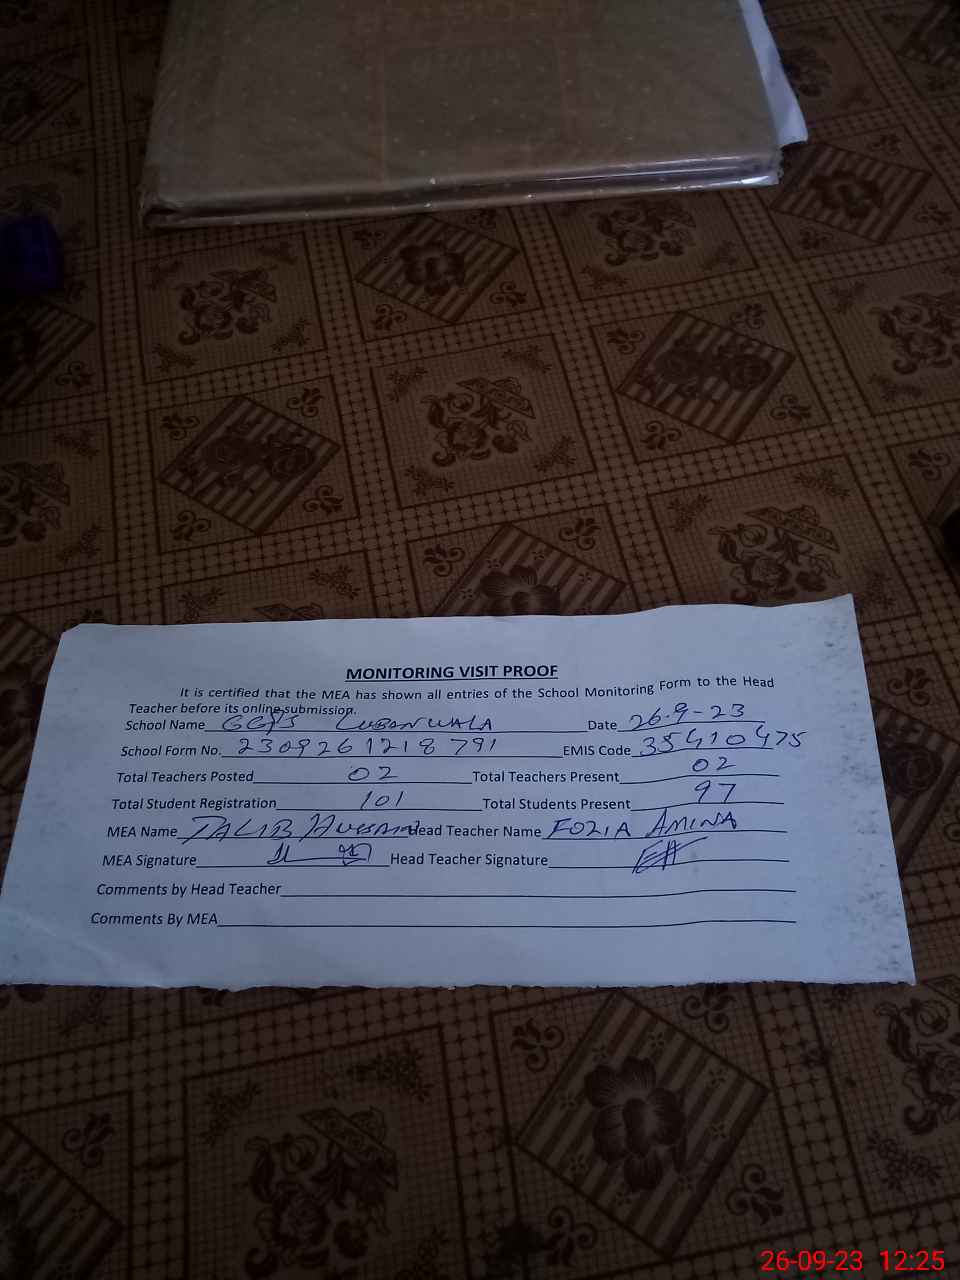 MONITORING VISIT PROOF
It is certified that the MEA has shown all entries of the School Monitoring Form to the Head
Teacher before its online submission.
School Name GGPS LUBANWALA Date 26-9-23
School Form No. 2309261218791 EMIS Code 35410475
Total Teachers Posted 02 Total Teachers Present 02
Total Student Registration 101 Total Students Present 97
MEA Name TALIB HUSSAIN Head Teacher Name FOZIA AMINA
MEA Signature Head Teacher Signature
Comments by Head Teacher
Comments By MEA
26-09-23 12:25